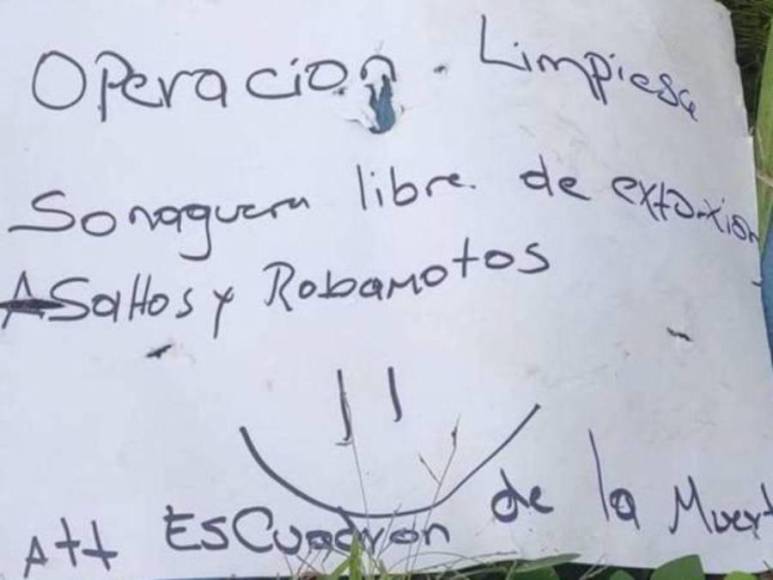 Operacion. Limpiesa
Sonaguera libre. de extorxion
Asaltos y Robamotos
Att Escuadron de la Muert